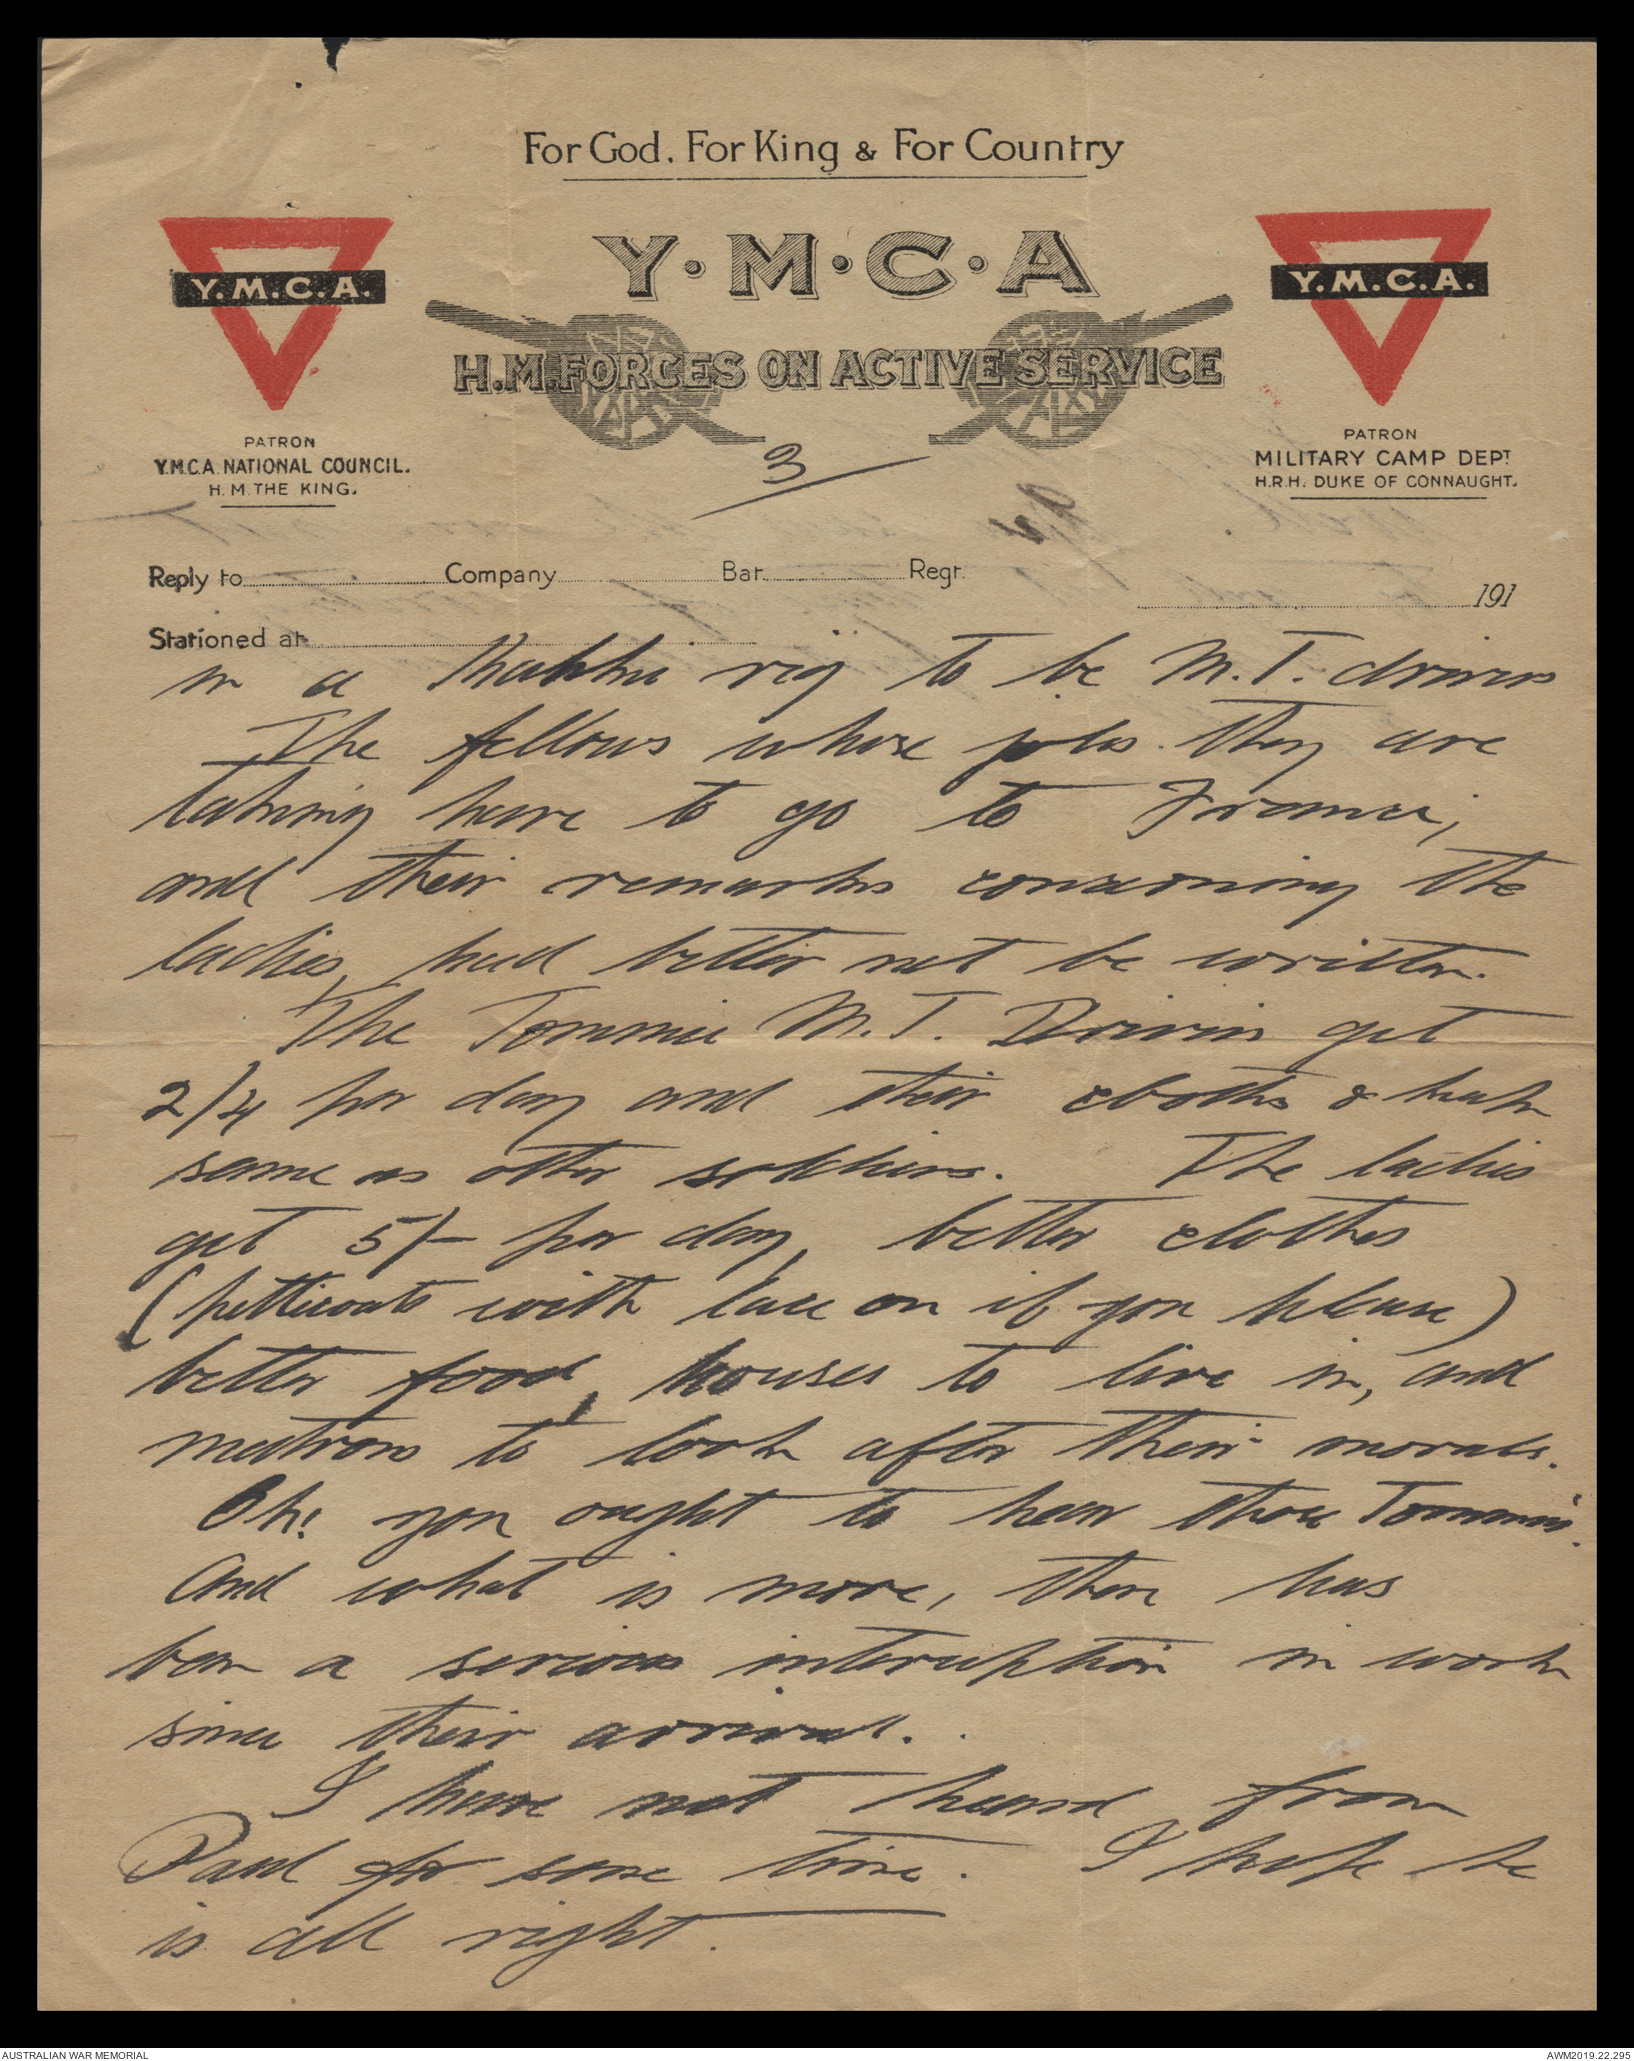 For God, For King & For Country
Y·M·C·A
H.M. FORCES ON ACTIVE SERVICE
Y.M.C.A.
Y.M.C.A.
PATRON
Y.M.C.A. NATIONAL COUNCIL.
H.M. THE KING.
PATRON
MILITARY CAMP DEPT
H.R.H. DUKE OF CONNAUGHT.
3
Reply to Company Bat. Regt.
191
Stationed at
in a Khahki rig to be M.T. drivers
The fellows whose jobs they are
taking have to go to France;
and their remarks concerning the
ladies, had better not be written.
The Tommie M.T. Drivers get
2/4 per day and their cloths &
same as other soldiers. The ladies
get 5/- per day, better clothes
(petticoats with lace on if you please)
better food, houses to live in, and
matrons to look after their morals.
Oh! you ought to hear those Tommies.
And what is more, there has
been a serious interuption in work
since their arrival.
I have not heard from
Paul for some time. I hope he
is all right.
AUSTRALIAN WAR MEMORIAL
AWM2019.22.295